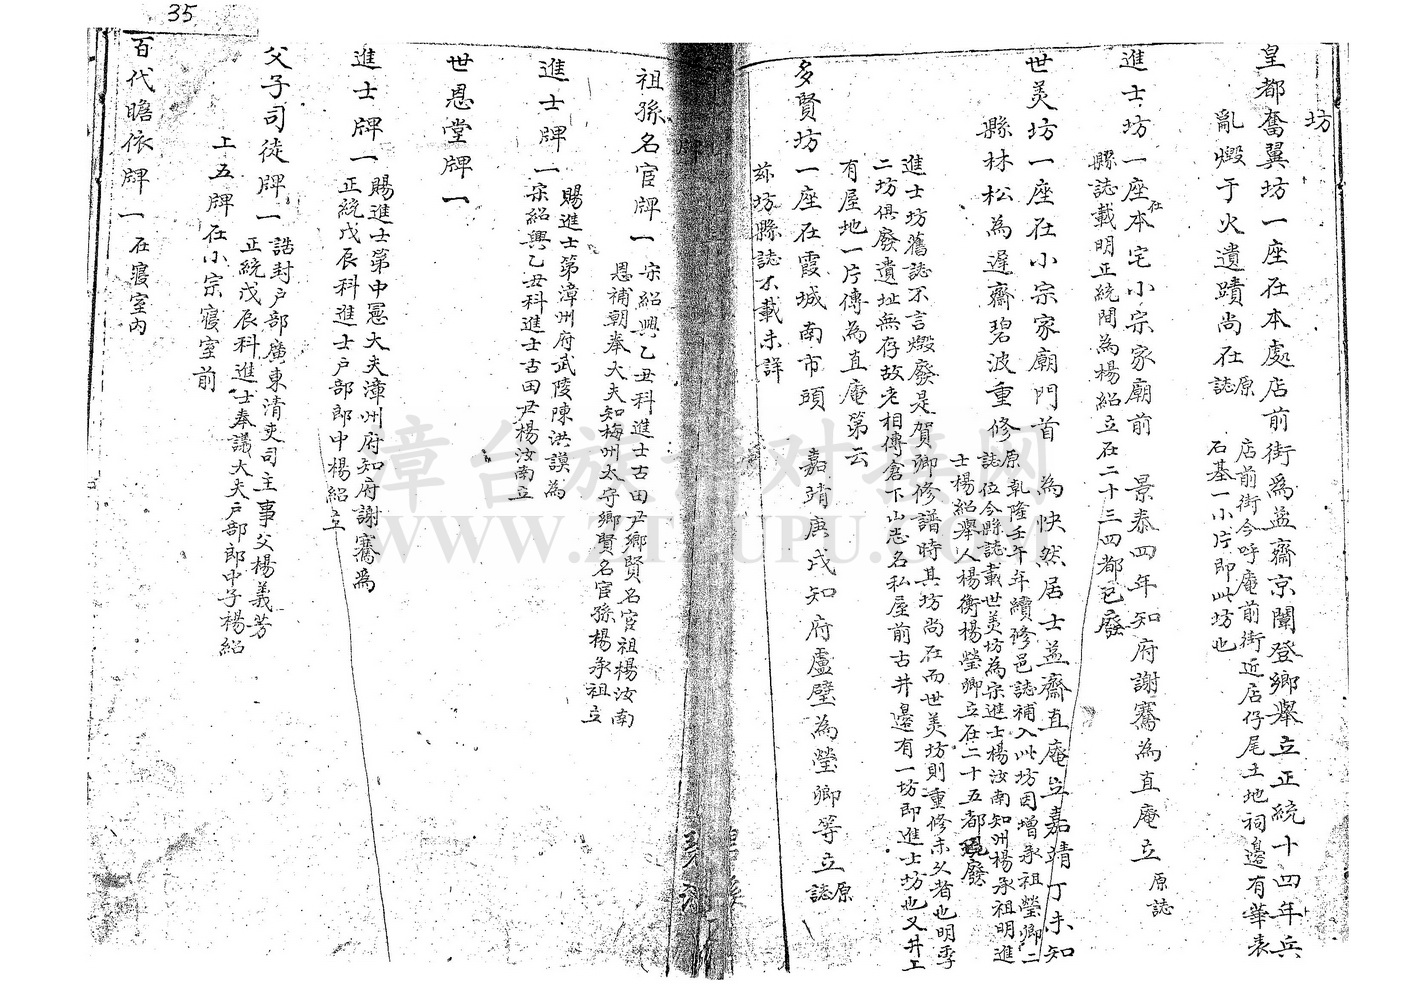 35
坊
皇都奮翼坊一座在本處店前街為益齋京闈登鄉舉立正統十四年兵
亂燬于火遺蹟尚在
原誌
店前街今呼庵前街近店仔尾土地祠邊有華表
石基一小片即此坊也
進士坊一座在本宅小宗家廟前 景泰四年知府謝騫為直庵立
原誌
縣誌載明正統間為楊紹立在二十三四都已廢
世美坊一座在小宗家廟門首 為怏然居士益齋直庵立嘉靖丁未知
縣林松為遲齋碧波重修
原誌
乾隆壬午年續修邑誌補入此坊因增承祖瑩卿二
位今縣誌載世美坊為宗進士楊汝南知州楊承祖明進
士楊紹舉人楊衡楊瑩卿立在二十五都現廢
進士坊舊誌不言燬廢是賀卿修譜時其坊尚在而世美坊則重修未久者也明季
二坊俱廢遺址無存故老相傳倉下山志名私屋前古井邊有一坊即進士坊也又井上
有屋地一片傳為直庵第云
多賢坊一座在霞城南市頭 嘉靖庚戌知府盧璧為瑩卿等立
原誌
茲坊縣誌不載未詳
祖孫名宦牌一
宋紹興乙丑科進士古田尹鄉賢名宦祖楊汝南
恩補朝奉大夫知梅州太守鄉賢名宦孫楊承祖立
進士牌一
賜進士第漳州府武陵陳洪謨為
宋紹興乙丑科進士古田尹楊汝南立
世恩堂牌一
進士牌一
賜進士第中憲大夫漳州府知府謝騫為
正統戊辰科進士戶部郎中楊紹立
父子司徒牌一
誥封戶部廣東清吏司主事父楊義芳
正統戊辰科進士奉議大夫戶部郎中子楊紹
上五牌在小宗寢室前
百代瞻依牌一 在寢室內
漳台族譜对接网
WWW.ZTZUPU.COM